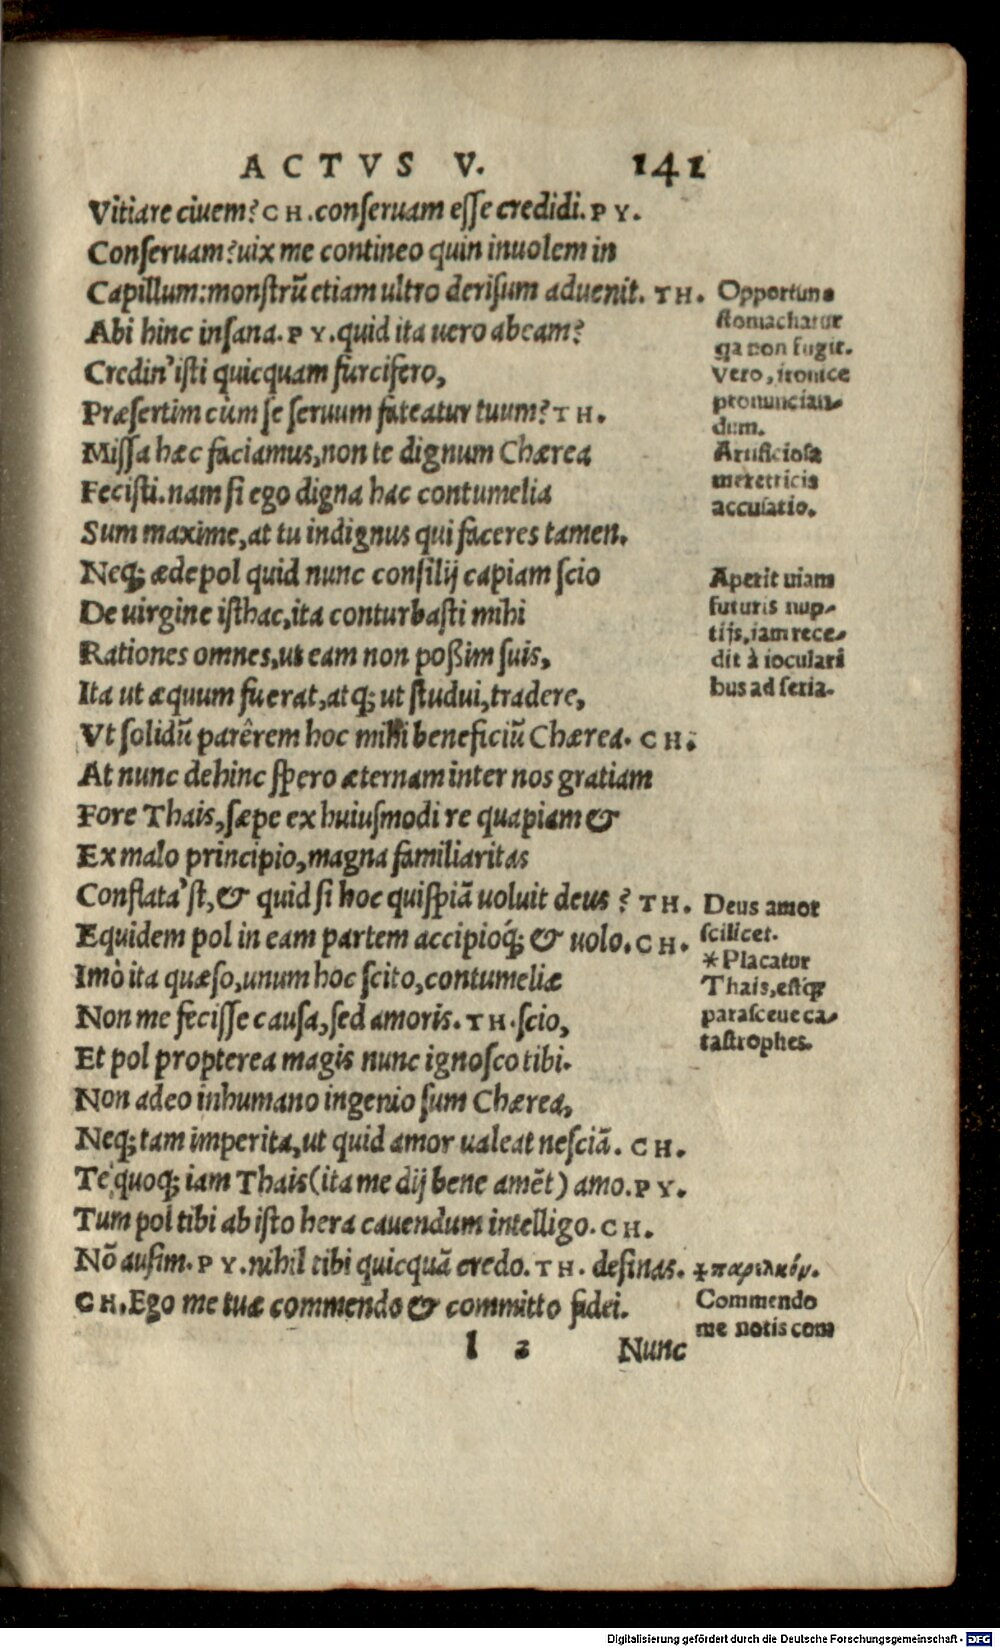 ACTVS V. 141
Vitiare ciuem? CH. conseruam esse credidi. PY.
Conseruam? uix me contineo quin inuolem in
Capillum: monstrũ etiam ultro derisum aduenit. TH.
Abi hinc insana. PY. quid ita uero abeam?
Credin' isti quicquam furcifero,
Præsertim cùm se seruum fateatur tuum? TH.
Missa hæc faciamus, non te dignum Chærea
Fecisti. nam si ego digna hac contumelia
Sum maxime, at tu indignus qui faceres tamen.
Neq; ædepol quid nunc consilij capiam scio
De uirgine isthac, ita conturbasti mihi
Rationes omnes, ut eam non poßim suis,
Ita ut æquum fuerat, atq; ut studui, tradere,
Vt solidũ parêrem hoc mihi beneficiũ Chærea. CH.
At nunc dehinc spero æternam inter nos gratiam
Fore Thais, sæpe ex huiusmodi re quapiam &
Ex malo principio, magna familiaritas
Conflata'st, & quid si hoc quispiã uoluit deus? TH.
Equidem pol in eam partem accipioq́; & uolo. CH.
Imò ita quæso, unum hoc scito, contumeliæ
Non me fecisse causa, sed amoris. TH. scio,
Et pol propterea magis nunc ignosco tibi.
Non adeo inhumano ingenio sum Chærea,
Neq; tam imperita, ut quid amor ualeat nesciã. CH.
Te quoq; iam Thais (ita me dij bene amẽt) amo. PY.
Tum pol tibi ab isto hera cauendum intelligo. CH.
Nõ ausim. PY. nihil tibi quicquã credo. TH. desinas.
CH. Ego me tuæ commendo & committo fidei.
l 2 Nunc
Opportune
stomachatur
qa non fugit.
Vero, ironice
pronuncian-
dum.
Artificiosa
meretricis
accusatio.
Aperit uiam
futuris nup-
tijs, iam rece-
dit à ioculari
bus ad seria.
Deus amor
scilicet.
*Placatur
Thais, estq́;
parasceue ca-
tastrophes.
*παρέλκόν.
Commendo
me notis com
Digitalisierung gefördert durch die Deutsche Forschungsgemeinschaft - DFG